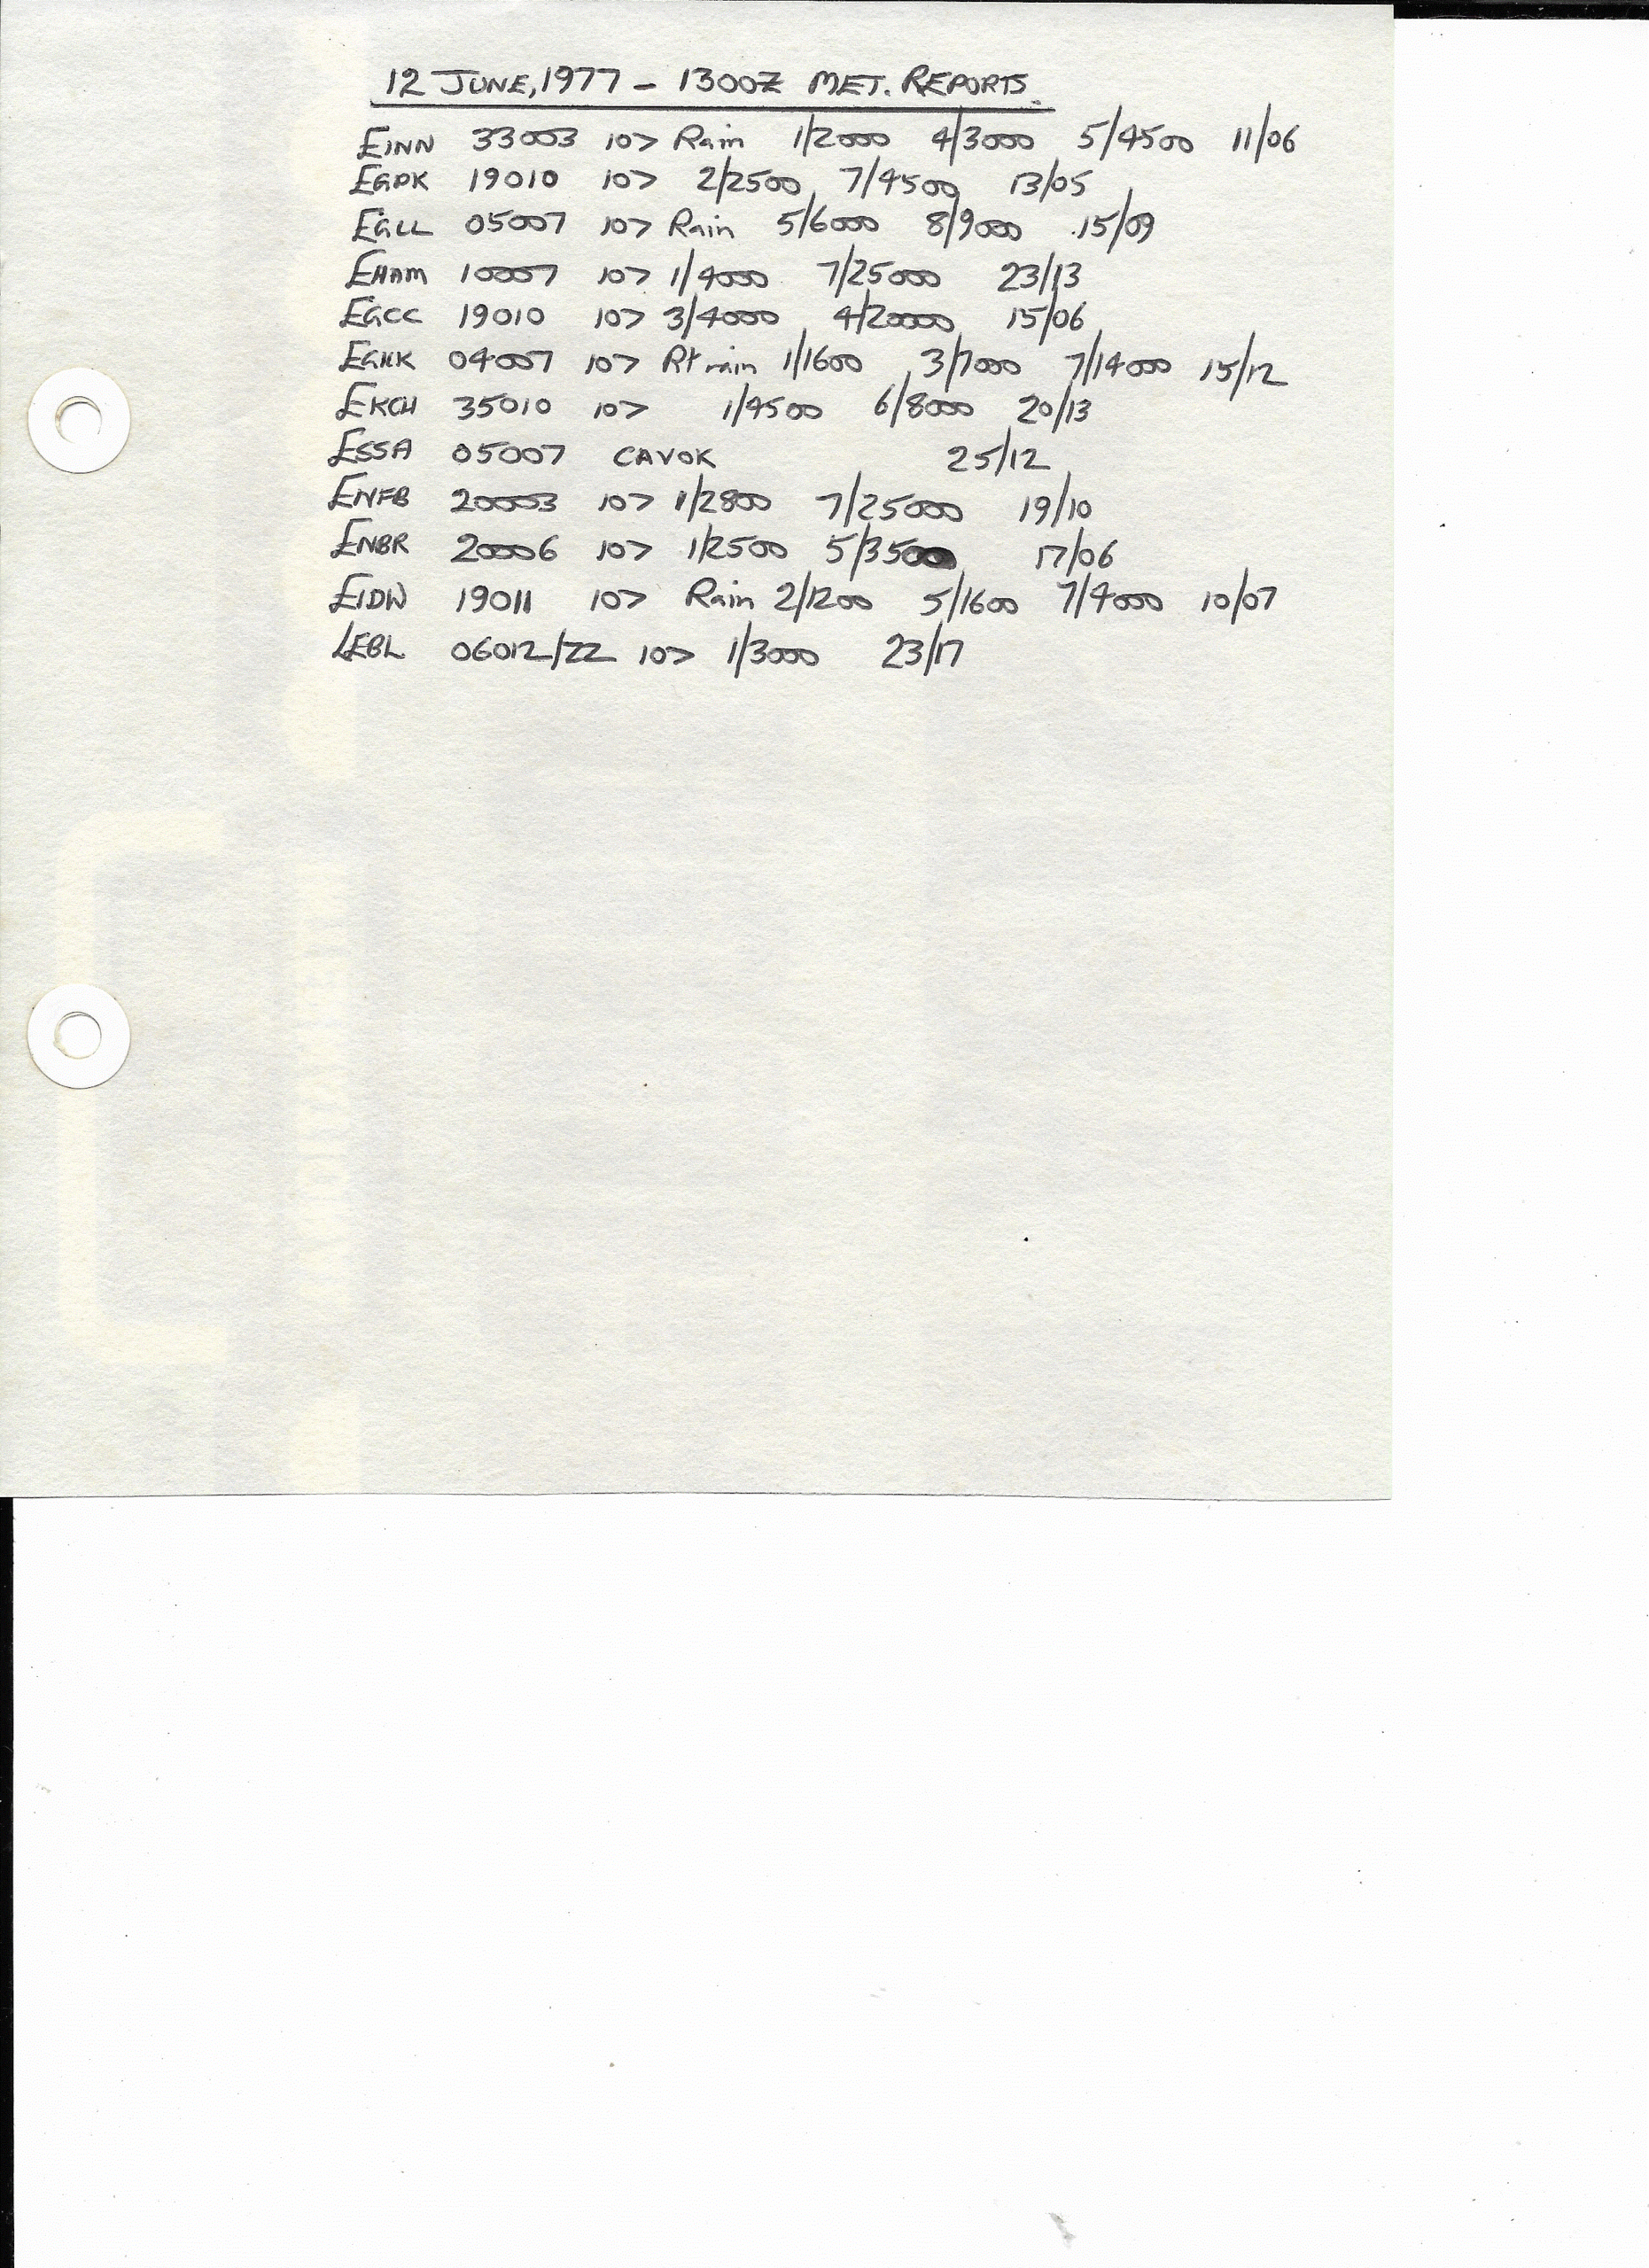 12 JUNE, 1977 - 1300Z MET. REPORTS.
EINN 33003 10> Rain 1/2000 4/3000 5/4500 11/06
EGPK 19010 10> 2/2500 7/4500 13/05
EGLL 05007 10> Rain 5/6000 8/9000 15/09
EHAM 10007 10> 1/4000 7/25000 23/13
EGCC 19010 10> 3/4000 4/20000 15/06
EGKK 04007 10> Rain 1/1600 3/7000 7/14000 15/12
EKCH 35010 10> 1/4500 6/8000 20/13
ESSA 05007 CAVOK 25/12
ENFB 20003 10> 1/2800 7/25000 19/10
ENBR 20006 10> 1/2500 5/3500 17/06
EIDW 19011 10> Rain 2/1200 5/1600 7/4000 10/07
LEBL 06012/22 10> 1/3000 23/17